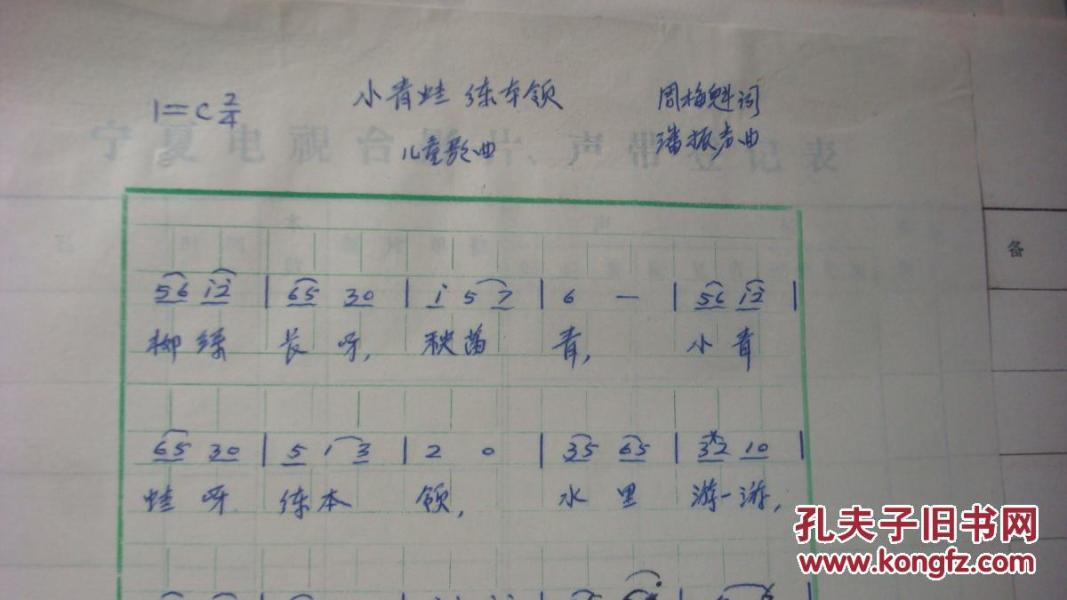 1=C 2/4
小青蛙 练本领
周梅魁词
儿童歌曲
潘振声曲
宁夏电视台影片、声带登记表
备
56 i2 | 65 30 | i 5 7 | 6 — | 56 i2 |
柳绿 长呀, 秧苗 青, 小青
65 30 | 5 1 3 | 2 0 | 35 65 | 32 10 |
蛙呀 练本 领, 水里 游一游,
孔夫子旧书网
www.kongfz.com